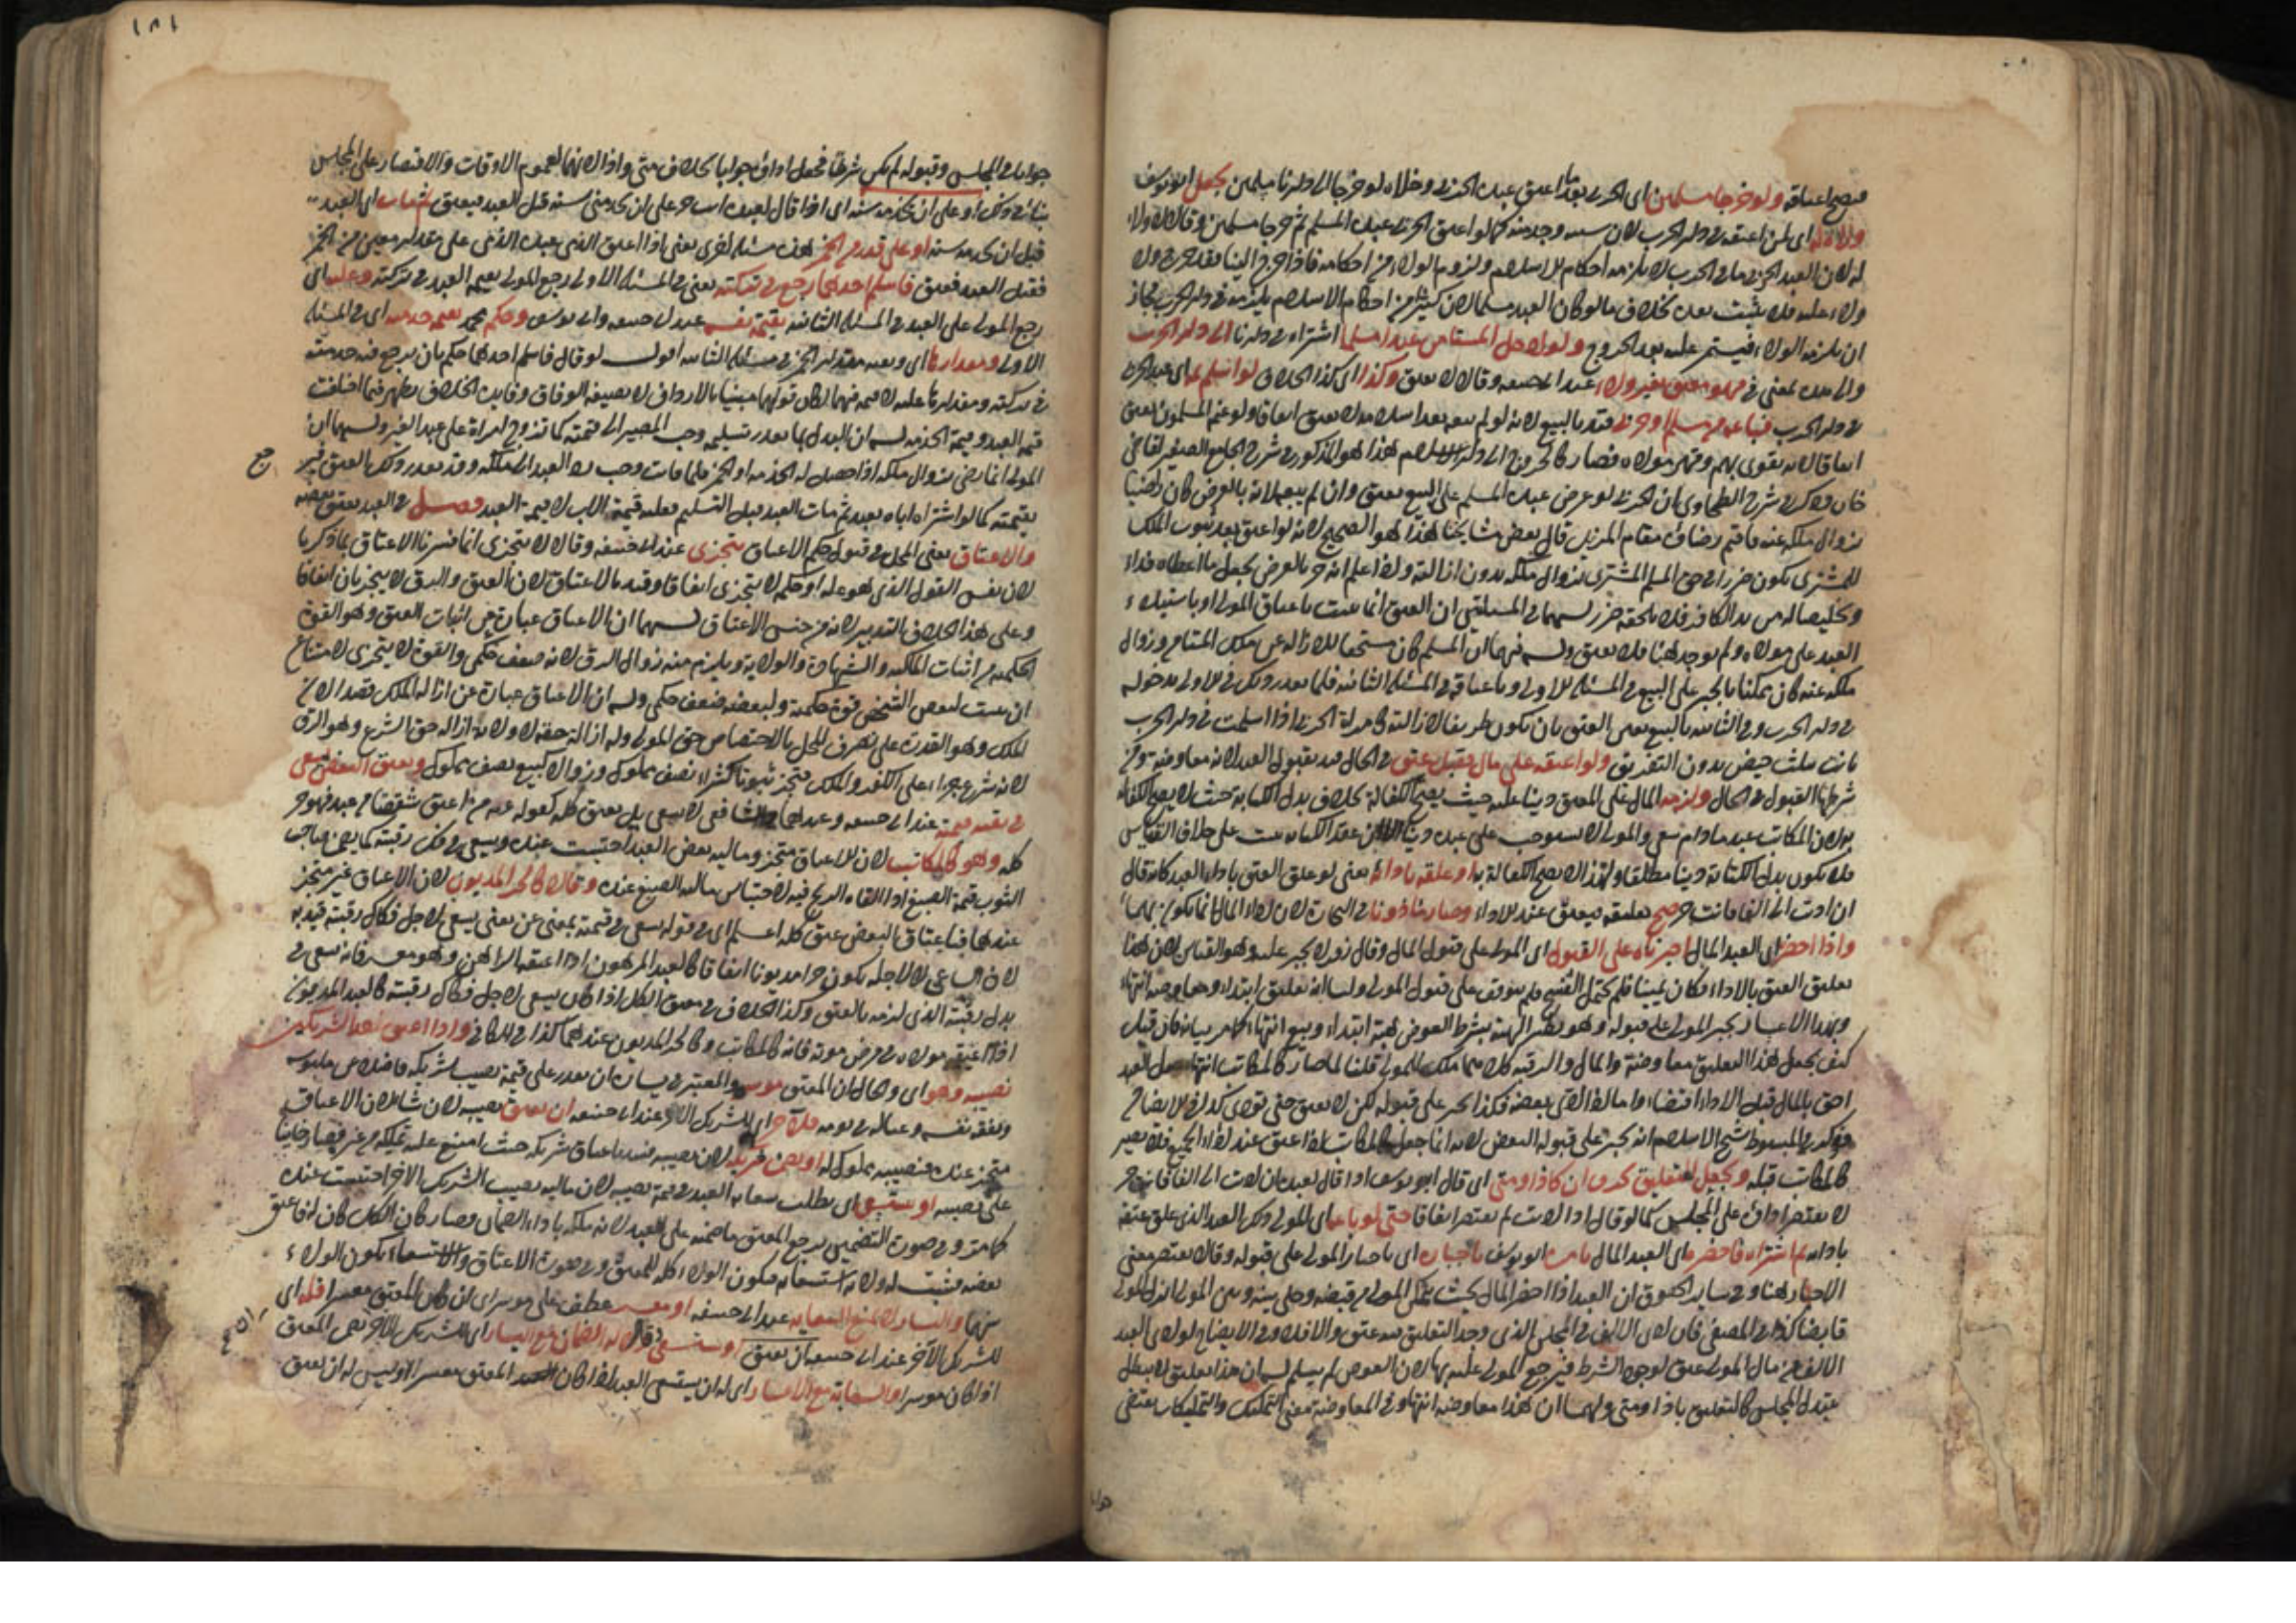 فصح اعتاقه ولو خرجا مسلمين اى الحربى بعد ما اعتق عبده الحربى وخلاه لو خرجا الى دارنا مسلمين يجعل ابو يوسف
ولاءه له اى لمن اعتقه فى دار الحرب لان سببه وجد منه كما لو اعتق الحربى عبده المسلم ثم خرجا مسلمين وقالا لا ولاء
له لان العبد الحربى فى دار الحرب لا يلزمه احكام الاسلام ولزوم الولاء من احكامه فاذا خرج الينا فقد خرج ولا
ولاء عليه فلا يثبت بعده بخلاف ما لو كان العبد مسلما لان كثيرا من احكام الاسلام يلزمه فى دار الحرب فجاز
ان يلزمه الولاء فيستمر عليه بعد الخروج ولو ادخل المستامن عبدا مسلما اشتراه فى دارنا الى دار الحرب
فهو معتق بغير ولاء عند ابى حنيفة وقالا لا يعتق وكذا اى كذا الخلاف لو اسلم عبد الحربى
فى دار الحرب فباعه من مسلم او حربى قيد بالبيع لانه لو لم يبعه بعد اسلامه لا يعتق اتفاقا ولو غنم المسلمون يعتق
اتفاقا لانه يقوى بهم وقهر مولاه فصار كالخروج الى دار الاسلام هذا هو المذكور فى شرح الجامع الصغير لقاضى
خان وذكر فى شرح الطحاوى ان الحربى لو عرض عبده المسلم على البيع يعتق وان لم يبعه لانه بالعرض كان راضيا
بزوال ملكه عنه فاقيم رضاه مقام المزيل قال بعض مشايخنا هذا هو الصحيح لانه لو اعتق بعد ثبوت الملك
للمشترى يكون ضررا فى حق المسلم المشترى بزوال ملكه بدون ازالته واذا علم انه حر بالعرض يجعل ما اعطاه فداء
وتخليصا له من يد الكافر فلا يلحقه ضرر لهما فى المسئلتين ان العتق انما يثبت باعتاق المولى او باستيلاء
العبد على مولاه ولم يوجد هنا فلا يعتق وله فيهما ان المسلم كان مستحقا للازالة عن ملك المستامن وزوال
ملكه عنه كان ممكنا بالجبر على البيع فى المسئلة الاولى وباعتاقه فى المسئلة الثانية فلما تعذر ذلك فى الاولى بدخوله
فى دار الحرب وفى الثانية بالبيع تعين العتق بان يكون طريقا لازالته كامراة الحربى اذا اسلمت فى دار الحرب
بانت بثلث حيض بدون التفريق ولو اعتقه على مال فقبل عتق فى الحال قيد بقبول العبد لانه معاوضة ومن
شرطها القبول فى الحال ولزمه المال على المعتق دينا عليه حيث يصح الكفالة بخلاف بدل الكتابة حيث لا يصح الكفالة
به لان المكاتب عبد ما دام يسعى والمولى لا يستوجب على عبده دينا لان عقد الكتابة يثبت على خلاف القياس
فلا يكون بدل الكتابة دينا مطلقا ولهذا لا يصح الكفالة به او علقه بادائه يعنى لو علق العتق باداء العبد كانه قال
ان اديت الى الفا فانت حر صح تعليقه فيعتق عند الاداء وصار ماذونا فى التجارة لان اداء المال انما يكون بها
واذا احضر اى العبد المال اجبرناه على القبول اى المولى على قبول المال وقال زفر لا يجبر عليه وهو القياس لان هذا
تعليق العتق بالاداء فكان يمينا فلم يحتمل الفسخ فلم يتوقف على قبول المولى ولنا انه تعليق ابتداء ومعاوضة انتهاء
وبهذا الاعتبار يجبر المولى على قبوله وهو نظير الهبة بشرط العوض هبة ابتداء وبيع انتهاء كما مر بيانه فان قيل
كيف يجعل هذا التعليق معاوضة والمال والرقبة كلاهما ملك للمولى قلنا لما صار كالمكاتب انتهاء جعل العبد
احق بالمال قبل الاداء اقتضاء واما اذا ادى بعضه فكذا يجبر على قبوله لكن لا يعتق حتى يؤدى كذا فى الايضاح
وذكر فى المبسوط شيخ الاسلام انه يجبر على قبول البعض لانه انما جعل كالمكاتب اذا عتق عند اداء الجميع فلا يصير
كالمكاتب قبله ويجعل التعليق بحرف ان كاذا ومتى اى قال ابو يوسف اذا قال لعبده ان اديت الى الفا فانت حر
لا يقتصر اداؤه على المجلس كما لو قال اذا اديت لم يقتصر اتفاقا حتى لو باعه اى المولى ذلك العبد الذى علق عتقه
بادائه ثم اشتراه فاحضره اى العبد المال يامر ابو يوسف باجباره اى باجبار المولى على قبوله وقالا يقتصر معنى
الاجبار هنا وفى سائر الحقوق ان العبد اذا احضر المال بحيث يتمكن المولى من قبضه وخلى بينه وبين المولى انزل المولى
قابضا كذا فى المصفى فان ادى الالف فى المجلس الذى وجد التعليق فيه عتق والا فلا وفى الايضاح لو ادى العبد
الالف من مال المولى عتق لوجود الشرط فيرجع المولى عليه بها لان العوض لم يسلم له ان هذا تعليق لا يبطل
بتبدل المجلس كالتعليق باذا ومتى ولهما ان هذا معاوضة انتهاء وفى المعاوضة معنى التمليك والتمليكات يقتضى
جوابا
١٨١
جوابا فى المجلس وقبوله لم يكن شرطا فجعل اداؤه جوابا بخلاف متى واذا لانهما لعموم الاوقات والاقتصار على المجلس
ينافى ذلك او على ان يخدمه سنة اى اذا قال لعبده انت حر على ان تخدمنى سنة فقبل العبد فيعتق ثم مات اى العبد
قبل ان يخدمه سنة او على قدر من الخمر هذه مسئلة اخرى يعنى اذا اعتق الذمى عبده الذمى على مقدار معين من الخمر
فقبل العبد فعتق فاسلم احدهما رجع فى تركته يعنى فى المسئلة الاولى رجع المولى بقيمة العبد فى تركته وعليه اى
رجع المولى على العبد فى المسئلة الثانية بقيمة نفسه عند ابى حنيفة وابى يوسف وحكم محمد بقيمة خدمته اى فى المسئلة
الاولى ومقدارها اى وبقيمة مقدار الخمر فى مسئلة الثانية اقول لو قال فاسلم احدهما حكم بان يرجع فيه خدمته
فى تركته ومقدارها عليه لا قيمة فيهما لكان قولهما مبنيا بالارداف لا بصيغة الوفاق وفايدة الخلاف يظهر فيما اختلفت
قيمة العبد وقيمة الخدمة له ان البدل لما تعذر تسليمه وجب المصير الى قيمته كما تزوج امراة على عبد الغير ولهما ان
المولى انما رضى بزوال ملكه اذا حصل له الخدمة او الخمر فلما فات وجب رد العبد الى ملكه وقد تعذر رده بالعتق فيرد
بقيمته كما لو اشترى اباه بعبد ثم مات العبد قبل التسليم فعليه قيمة الاب لا قيمة العبد فصل فى العبد يعتق بعضه
والاعتاق يعنى المحل فى قبول حكم الاعتاق يتجزى عند ابى حنيفة وقالا لا يتجزى انما فسرنا الاعتاق بما ذكرنا
لان نفس القول الذى هو علة او حكمه لا يتجزى اتفاقا وقيد بالاعتاق لان العتق والرق لا يتجزيان اتفاقا
وعلى هذا الخلاف التدبير لانه من جنس الاعتاق لهما ان الاعتاق عبارة عن اثبات العتق وهو القوة
الحكمية من اثبات المالكية والشهادة والولاية ويلزم منه زوال الرق لانه ضعف حكمى والقوة لا يتجزى لامتناع
ان يثبت لبعض الشخص قوة حكمية ولبعضه ضعف حكمى وله ان الاعتاق عبارة عن ازالة الملك قصدا لان
الملك وهو القدرة على تصرف المحل بالاختصاص حق المولى وله ازالة حقه لا ولاية ازالة حق الشرع وهو الرق
لانه شرع جزاء على الكفر والملك يتجزى ثبوتا كشراء نصف مملوك وزوالا كبيع نصف مملوك ويعتق البعض يسعى
فى بقية قيمته عند ابى حنيفة وعندهما والشافعى لا يسعى بل يعتق كله لقوله عليه السلام من اعتق شقصا من عبد فهو حر
كله وهو كالمكاتب لان الاعتاق متجز ومالية بعض العبد احتبست عنده ويسعى فى فك رقبته كما يضمن صاحب
الثوب قيمة الصبغ اذا القاه الريح فيه لاحتباس مالية الصبغ عنده وقالا كالحر المديون لان الاعتاق غير متجز
عندهما فباعتاق البعض عتق كله اعلم ان فى قوله يسعى فى قيمته بمعنى عن يعنى يسعى لاجل فكاك رقبته قيد به
لان الساعى لا لاجله يكون حرا مديونا اتفاقا كالعبد المرهون اذا اعتقه الراهن وهو معسر فانه يسعى فى
بدل رقبته الذى لزمه بالعتق وكذا الخلاف فى معتق الكل اذا كان يسعى لاجل فكاك رقبته كالعبد المديون
اذا اعتقه مولاه فى مرض موته فانه كالمكاتب وكالحر المديون عندهما كذا فى الكافى واذا اعتق احد الشريكين
نصيبه وهو اى والحال ان المعتق موسر والمعتبر فى يساره ان يقدر على قيمة نصيب شريكه فاضلا عن ملبوسه
ونفقة نفسه وعياله فى يومه فللآخر اى للشريك الآخر عند ابى حنيفة ان يعتق نصيبه لان شاء لان الاعتاق
متجز عنده فنصيبه مملوك له او يضمن شريكه لان نصيبه فسد باعتاق شريكه حيث امتنع عليه تمليكه من غيره فصار جانيا
على نصيبه او يستسعى اى يطلب سعاية العبد فى قيمة نصيبه لان مالية نصيب الشريك الآخر احتبست عنده
كما مر وفى صورة التضمين يرجع المعتق بما ضمنه على العبد لانه ملكه باداء الضمان وصار كان الكل كان له فاعتق
بعضه فيثبت له ولاية استسعائه فيكون الولاء كله للمعتق وفى صورة الاعتاق والاستسعاء يكون الولاء
بينهما واليسار لا يمنع السعاية عند ابى حنيفة او معسر عطف على موسر اى ان كان المعتق معسرا فله اى
للشريك الآخر عند ابى حنيفة ان يعتق او يستسعى وقالا له الضمان مع اليسار اى للشريك الآخر تضمين المعتق
اذا كان موسرا والسعاية مع الاعسار اى له ان يستسعى العبد اذا كان المعتق معسرا وليس له ان يعتق